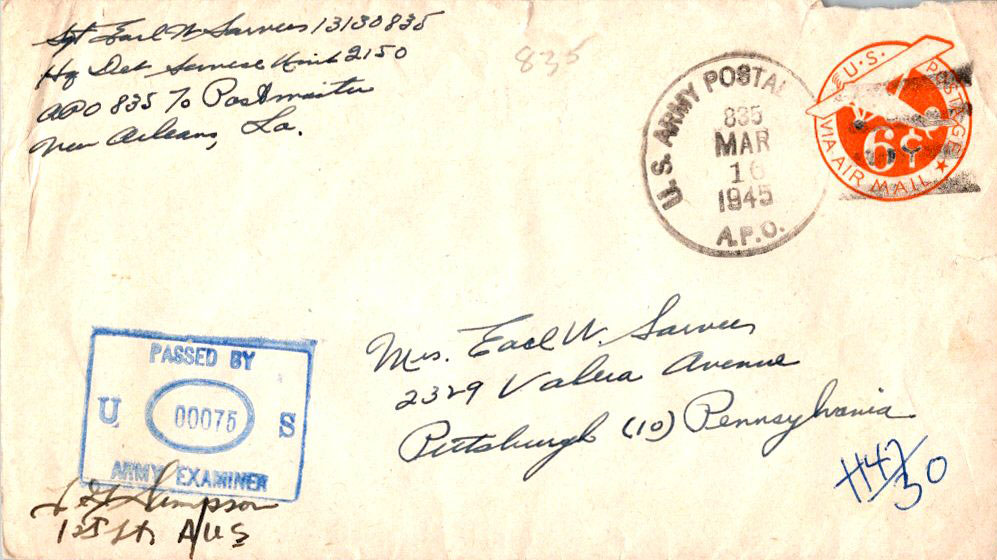 Sgt Earl W Sarvers 13130835
Hq Det Service Unit 2150
APO 835 To Postmaster
New Orleans, La.
835
U.S. ARMY POSTAL
835
MAR
16
1945
A.P.O.
U.S. POSTAGE
6¢
VIA AIR MAIL
Mrs. Earl W. Sarvers
2329 Valera Avenue
Pittsburgh (10) Pennsylvania
PASSED BY
U 00075 S
ARMY EXAMINER
Simpson
1st Lt AUS
H47/30